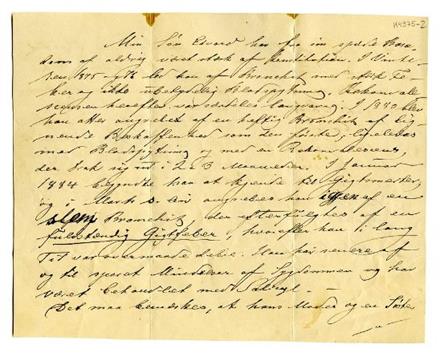 N4975-2
Min Søn Edvard har fra sin spæde Barn-
dom af aldrig været stærk af Constitution. I Vinte-
ren 1875-76 blev han af Bronchit med stærk Fe-
ber og ikke ubetydelig Blodspytning.
var særdeles langvarig. I 1880 blev
han atter angreben af en heftig Bronchit af lig-
nende Beskaffenhed som den første, ligeledes
med Blodspytning og med en
der trak ud i 2 à 3 Maaneder. I Januar
1884 begyndte han at kjende til Gigtsmerter
og i Marts s. A. angrebes han igjen af en
slem Bronchit, der efterfulgtes af en
fuldstændig Gigtfeber, hvorefter han i lang
Tid var overmaade Han har senere af
og til sporet Mindelser af Sygdommen og har
været behandlet med
Det maa bemærkes, at hans Moder og en Søster